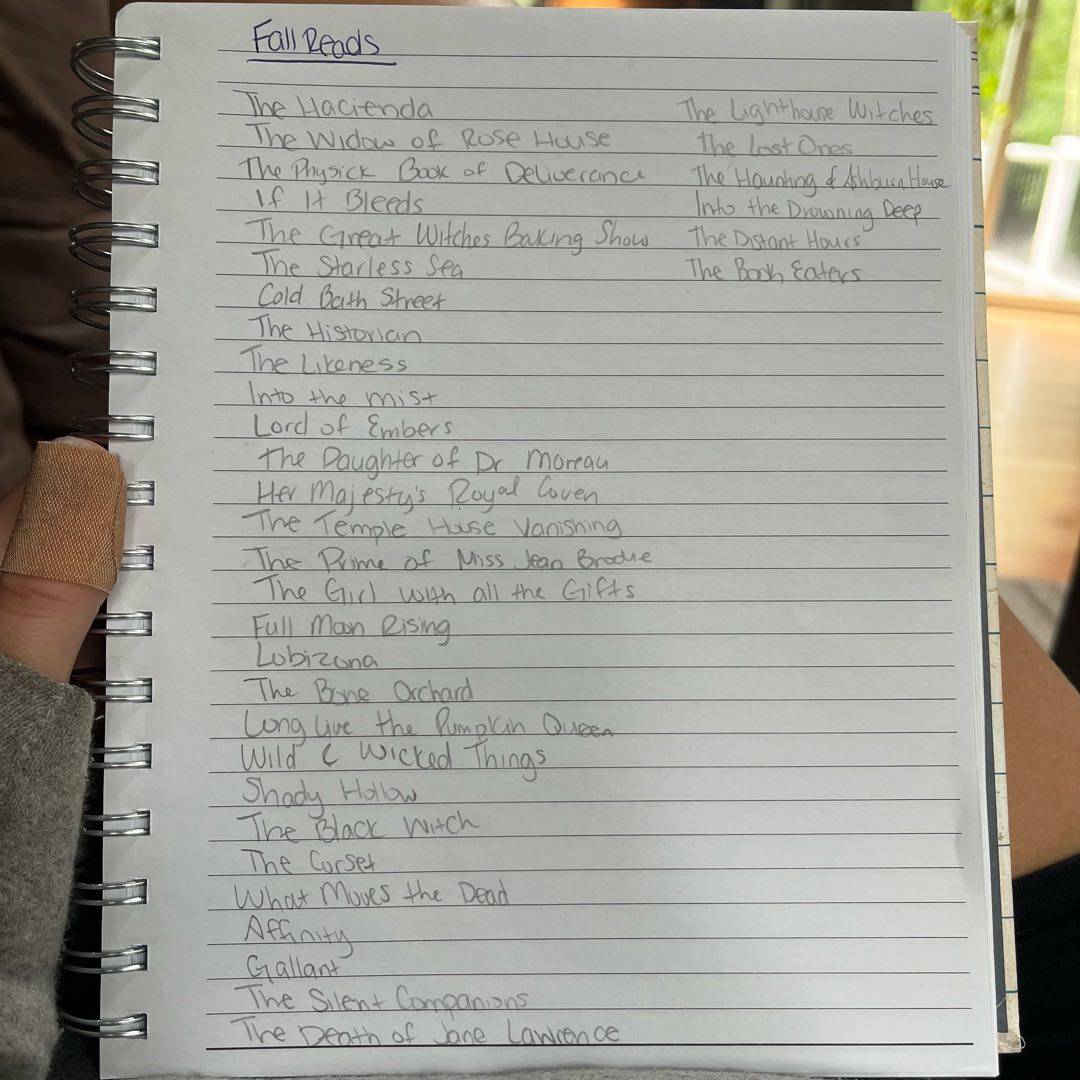 Fall Reads
The Hacienda
The Widow of Rose House
The Physick Book of Deliverance
If It Bleeds
The Great Witches Baking Show
The Starless Sea
Cold Bath Street
The Historian
The Likeness
Into the mist
Lord of Embers
The Daughter of Dr Moreau
Her Majesty's Royal Coven
The Temple House Vanishing
The Prime of Miss Jean Brodie
The Girl with all the Gifts
Full Moon Rising
Lobizona
The Bone Orchard
Long Live the Pumpkin Queen
Wild & Wicked Things
Shady Hollow
The Black Witch
The Corset
What Moves the Dead
Affinity
Gallant
The Silent Companions
The Death of Jane Lawrence
The Lighthouse Witches
The Lost Ones
The Haunting of Ashburn House
Into the Drowning Deep
The Distant Hours
The Book Eaters